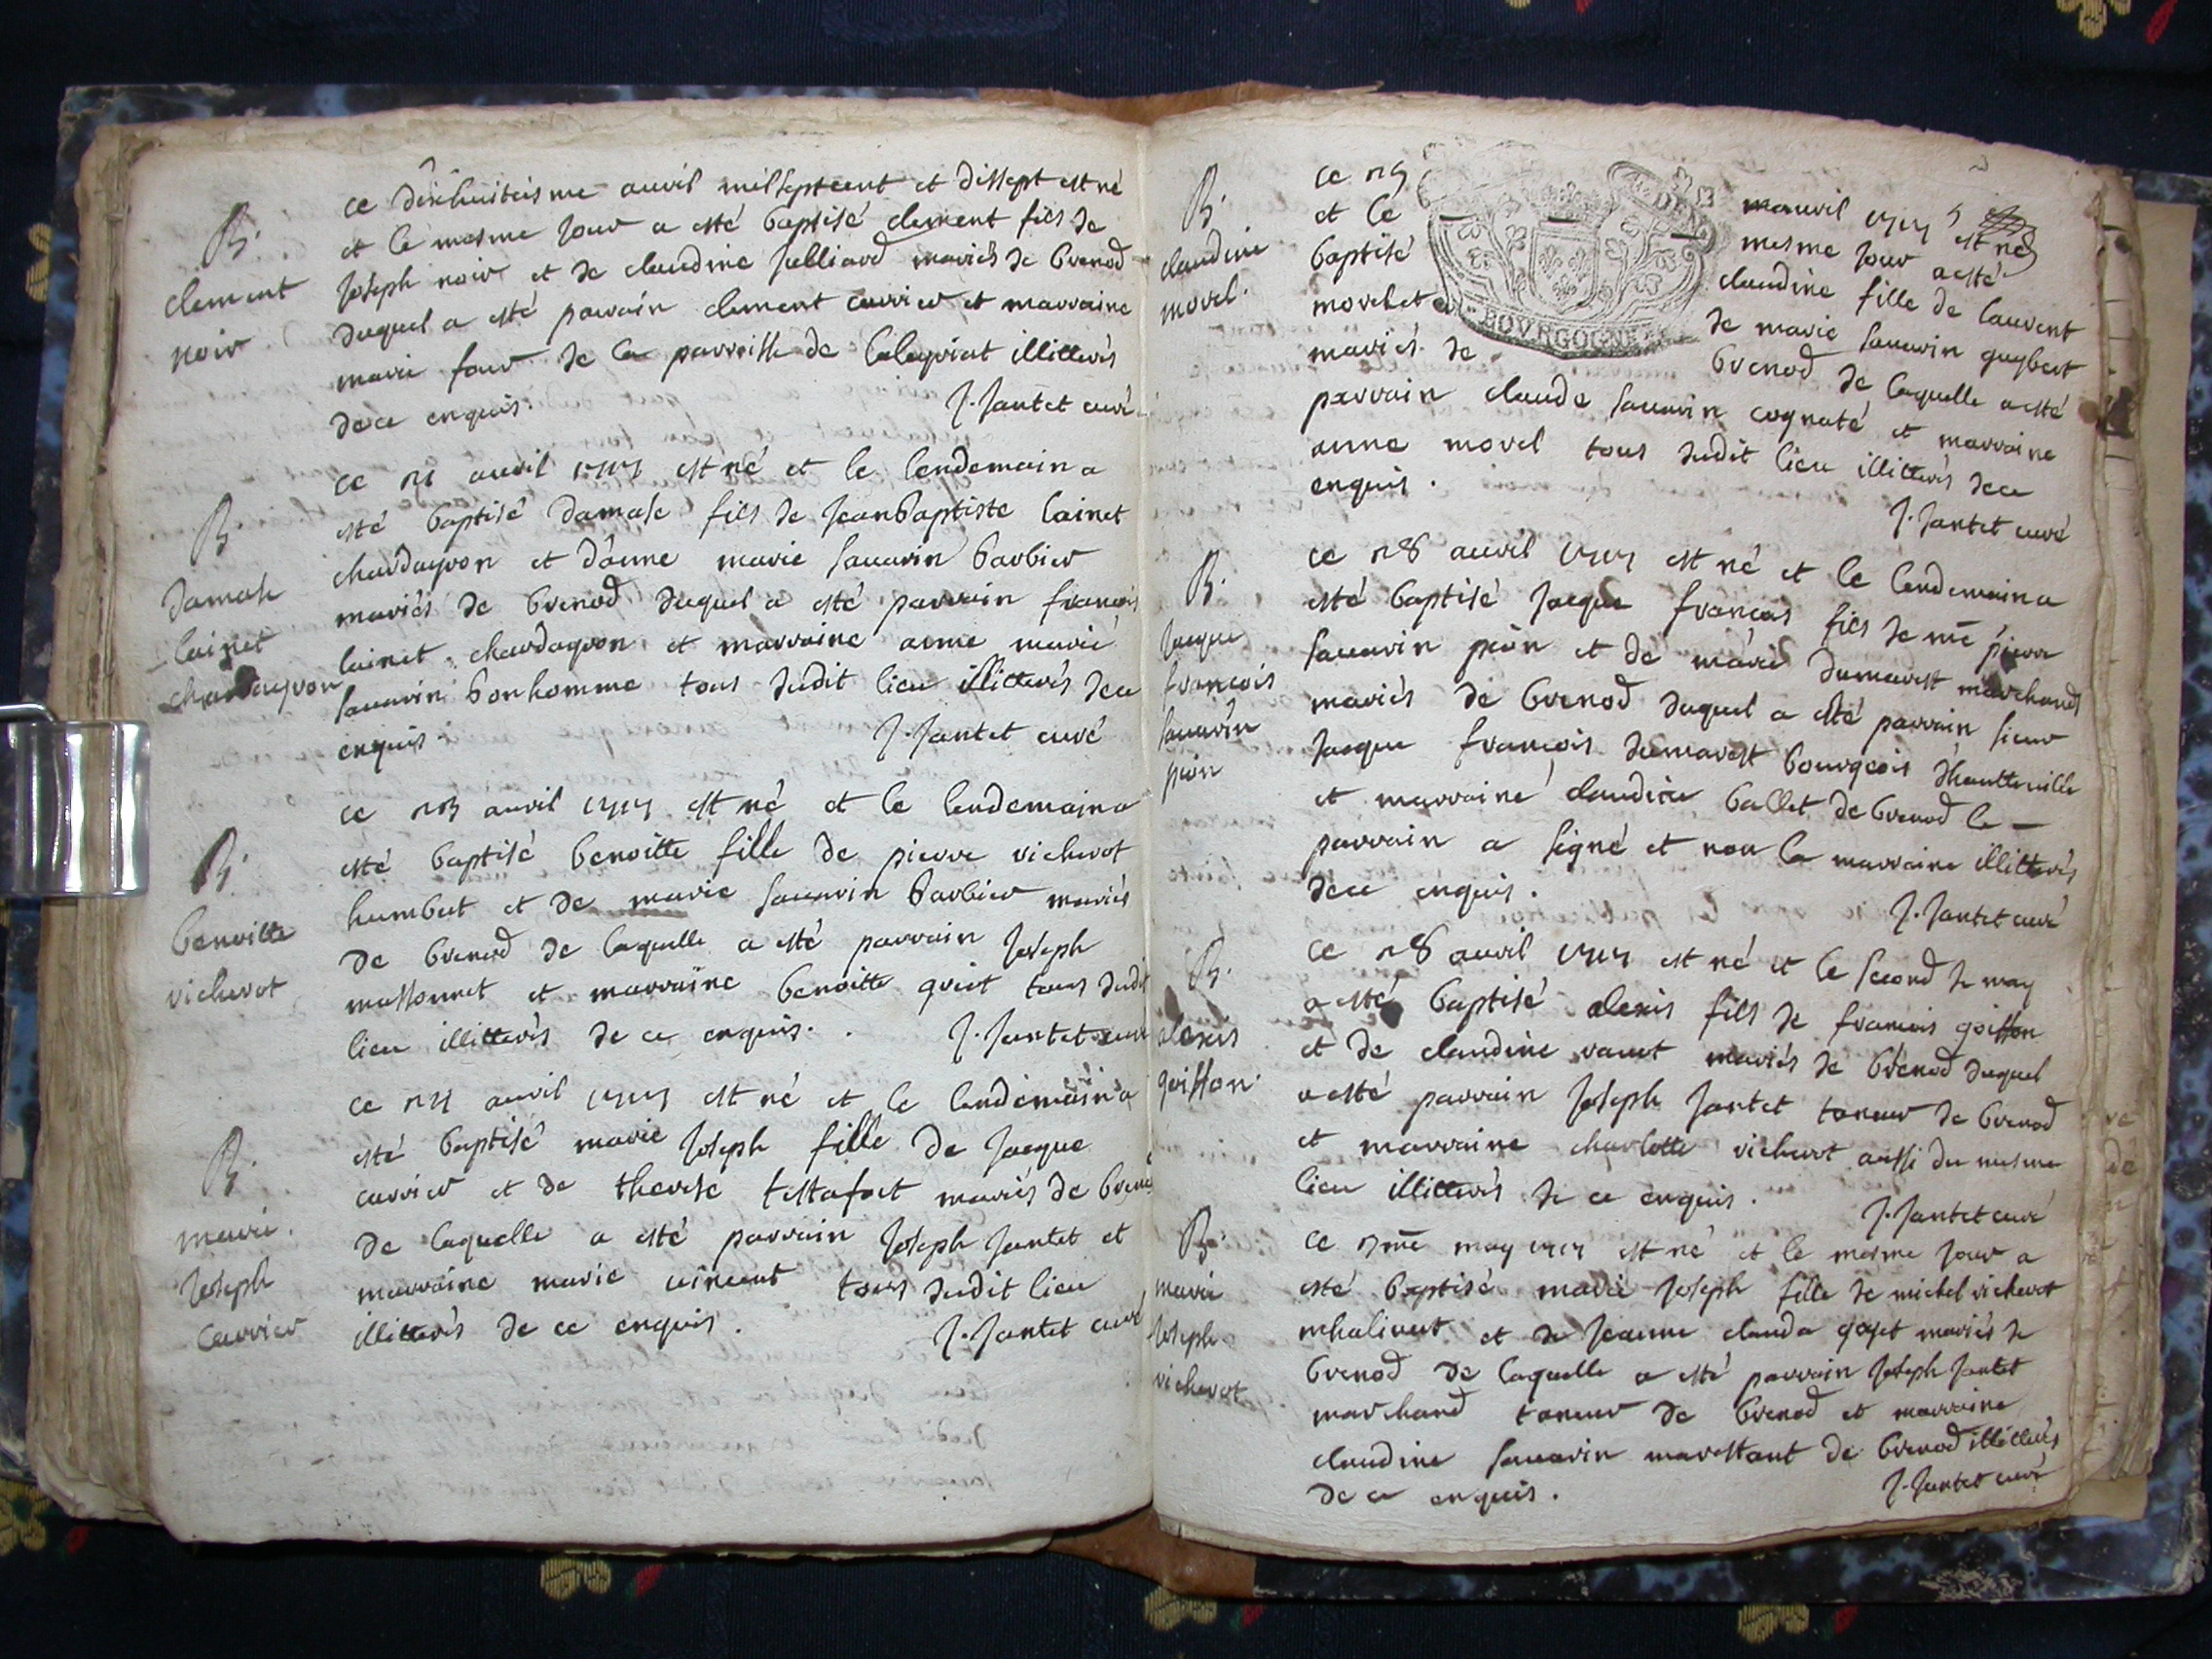 B.
clement
noir
ce dixhuitiesme auvil mil sept cent et dissept est né
et le mesme jour a esté baptisé clement fils de
Joseph noir et de claudine Julliard mariés de brenod
duquel a esté parrain clement carrier et marraine
marie four de la parroisse de laleyriat illitterés
de ce enquis. J. Jantet curé
B.
Damase
lainet
chardayron
ce 21 auvil 1717 est né et le lendemain a
esté baptisé damase fils de Jean baptiste lainet
chardayron et d'anne marie Savarin barbier
mariés de brenod duquel a esté parrain francois
lainet chardayron et marraine anne marie
Savarin bonhomme tous dudit lieu illitterés de ce
enquis. J. Jantet curé
B.
benoitte
vicherot
ce 23 auvil 1717 est né et le lendemain a
esté baptisé benoitte fille de pierre vicherot
humbert et de marie Savarin barbier mariés
de brenod de laquelle a esté parrain Joseph
massonnet et marraine benoitte griot tous dudit
lieu illitterés de ce enquis. J. Jantet curé
B.
marie
Joseph
carrier
ce 24 auvil 1717 est né et le lendemain a
esté baptisé marie Joseph fille de Jacque
carrier et de therese testafort mariés de brenod
de laquelle a esté parrain Joseph Jantet et
marraine marie vincent tous dudit lieu
illitterés de ce enquis. J. Jantet curé
B.
claudine
morel.
ce 25 auvil 1717 est né
et le mesme jour a esté
baptisé claudine fille de laurent
morel et de marie Savarin guybert
mariés de brenod de laquelle a esté
BOVRGOGNE
parrain claude Savarin cognaté et marraine
anne morel tous dudit lieu illitterés de ce
enquis. J. Jantet curé
B.
Jacque
francois
Savarin
pion
ce 28 auvil 1717 est né et le lendemain a
esté baptisé Jacque francois fils de me pierre
Savarin pion et de marie dumarest marchands
mariés de brenod duquel a esté parrain Sieur
Jacque francois dumarest bourgeois d'hautteville
et marraine claudine ballet de brenod le
parrain a signé et non la marraine illitterés
de ce enquis. J. Jantet curé
B.
alexis
goiffon
ce 28 auvil 1717 est né et le second de may
a esté baptisé alexis fils de francois goiffon
et de claudine mariés de brenod duquel
a esté parrain Joseph Jantet taneur de brenod
et marraine charlotte vicherot aussi du mesme
lieu illitterés de ce enquis. J. Jantet curé
B.
marie
Joseph
vicherot
ce may 1717 est né et le mesme jour a
esté baptisé marie Joseph fille de michel vicherot
et de Jeanne clauda gayet mariés de
brenod de laquelle a esté parrain Joseph Jantet
marchand taneur de brenod et marraine
claudine Savarin de brenod illitterés
de ce enquis. J. Jantet curé